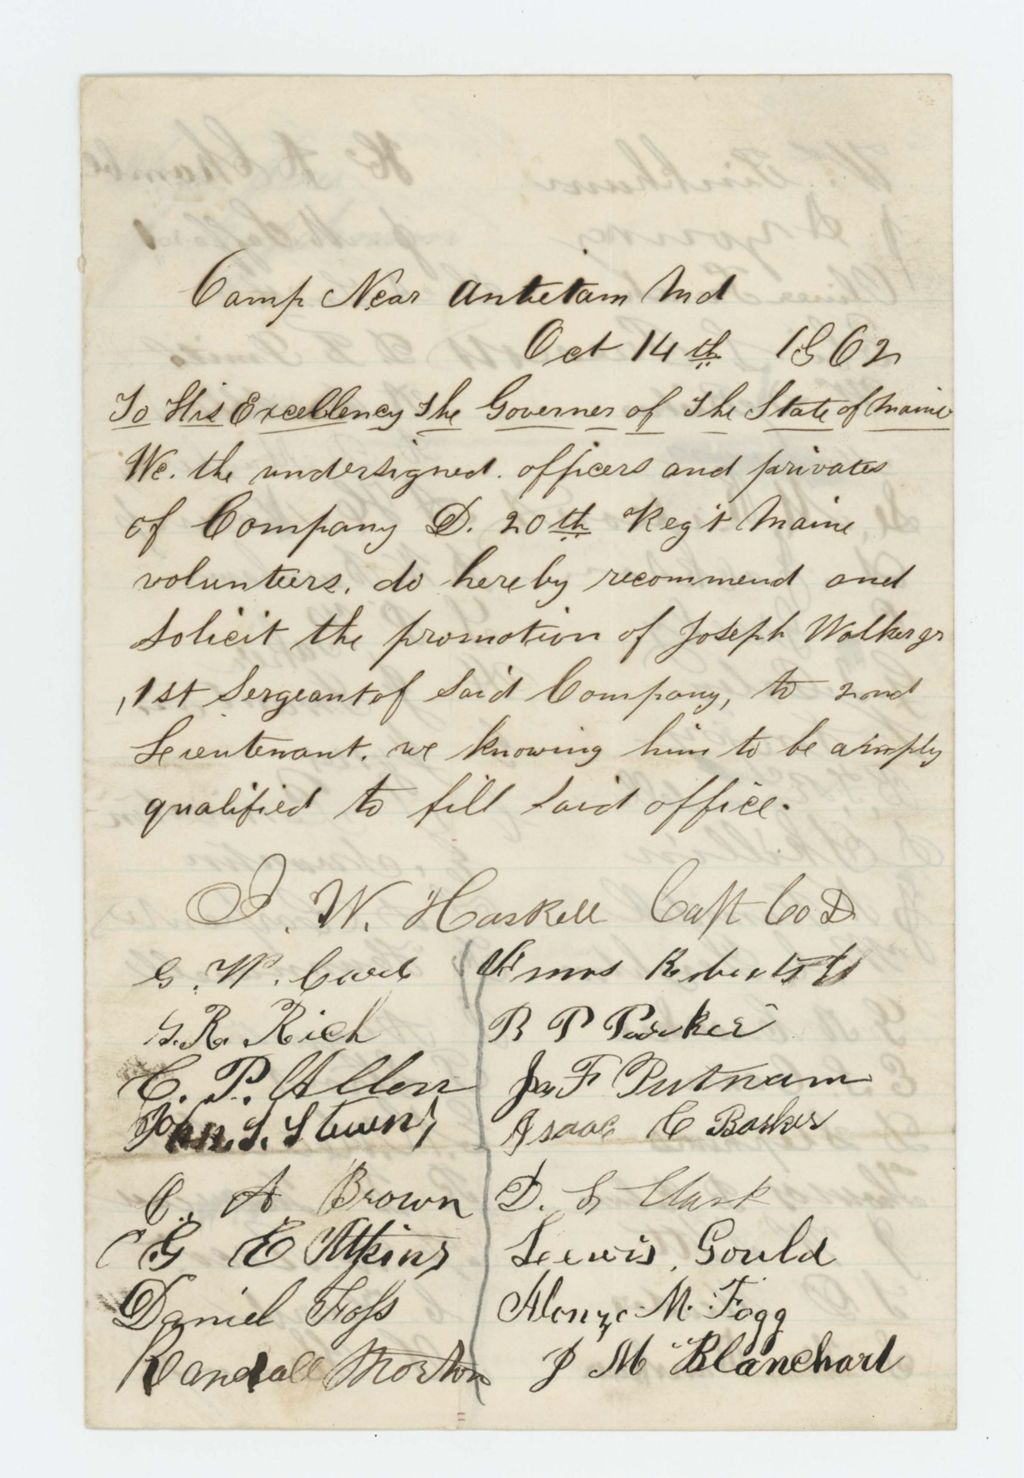 Camp Near Antietam Md
Oct 14th 1862
To His Excellency The Governer of The State of Maine
We. the undersigned. officers and privates
of Company D. 20th Reg't Maine
volunteers. do hereby recommend and
solicit the promotion of Joseph Walker jr
, 1st Sergeant of said Company, to 2nd
Leientenant. we knowing him to be aimply
qualified to fill said office.
I. W. Haskell Capt Co D
G. W. Card
Amos Roberts
G. R. Rich
R P Parker
C. P. Allen
Jas F Putnam
John. S. Stevens
Isaac C Barker
C. A. Brown
D. S Clark
G E Atkins
Leewis Gould
Daniel Foss
Alonzo M. Fogg
Randall Morton
J M Blanchard